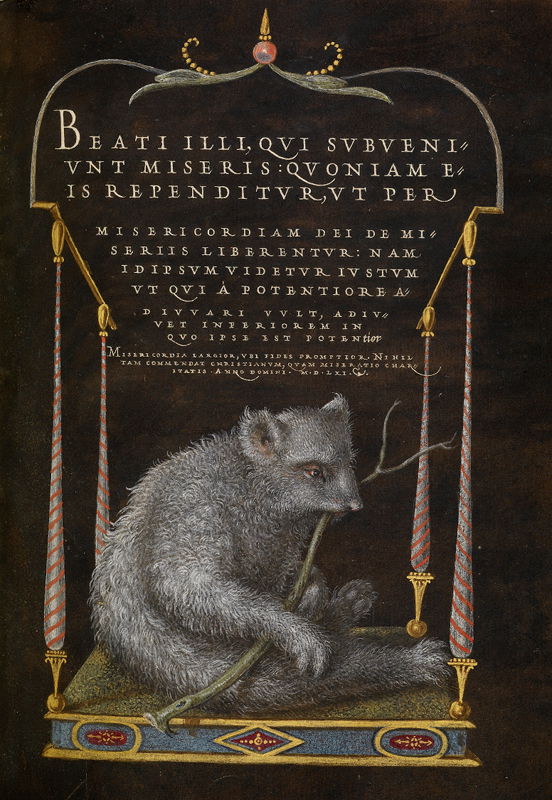 BEATI ILLI, QVI SVBVENI=
VNT MISERIS: QVONIAM E=
IS REPENDITVR, VT PER
MISERICORDIAM DEI DE MI=
SERIIS LIBERENTVR: NAM
IDIPSVM VIDETVR IVSTVM
VT QVI À POTENTIORE A=
DIVVARI VVLT, ADIV=
VET INFERIOREM IN
QVO IPSE EST POTENtior
MISERICORDIA LARGIOR, VBI FIDES PROMPTIOR. NIHIL
TAM COMMENDAT CHRISTIANVM, QVAM MISERATIO CHARI
TATIS. ANNO DOMINI. M.D.LXI.